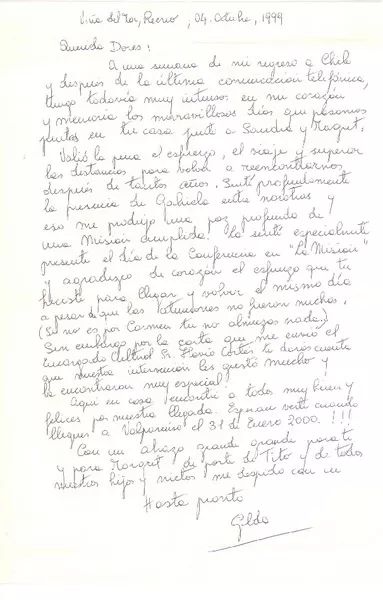 Viña del Mar, Recreo, 04, Octubre, 1999
Querida Doris:
A una semana de mi regreso a Chile
y después de la última comunicación telefónica,
tengo todavía muy intensos en mi corazón
y memoria los maravillosos días que pasamos
juntas en tu casa junto a Sandra y Margret.
Valió la pena el esfuerzo, el viaje y superar
las distancias para volver a reencontrarnos
después de tantos años. Sentí profundamente
la presencia de Gabriela entre nosotras y
eso me produjo una paz profunda de
una Misión cumplida. La sentí especialmente
presente el día de la Conferencia en "La Misión"
y agradezco de corazón el esfuerzo que tu
hiciste para llegar y volver el mismo día
a pesar de que las no fueron muchas.
(Si no es por Carmen tu no almuerzas nada.)
Sin embargo por la carta que me envió el
Encargado Cultural Sr. Flavio Cortés te darás cuenta
que nuestra intervención les gustó mucho y
la encontraron muy especial!
Aquí en casa encontré a todos muy bien y
felices por nuestra llegada. Esperan verte cuando
llegues a Valparaíso el 31 de Enero 2000. !!!
Con un abrazo grande grande para ti
y para Margret de parte de Tito y de todos
nuestros hijos y nietos me despido con un
Hasta pronto
Gilda